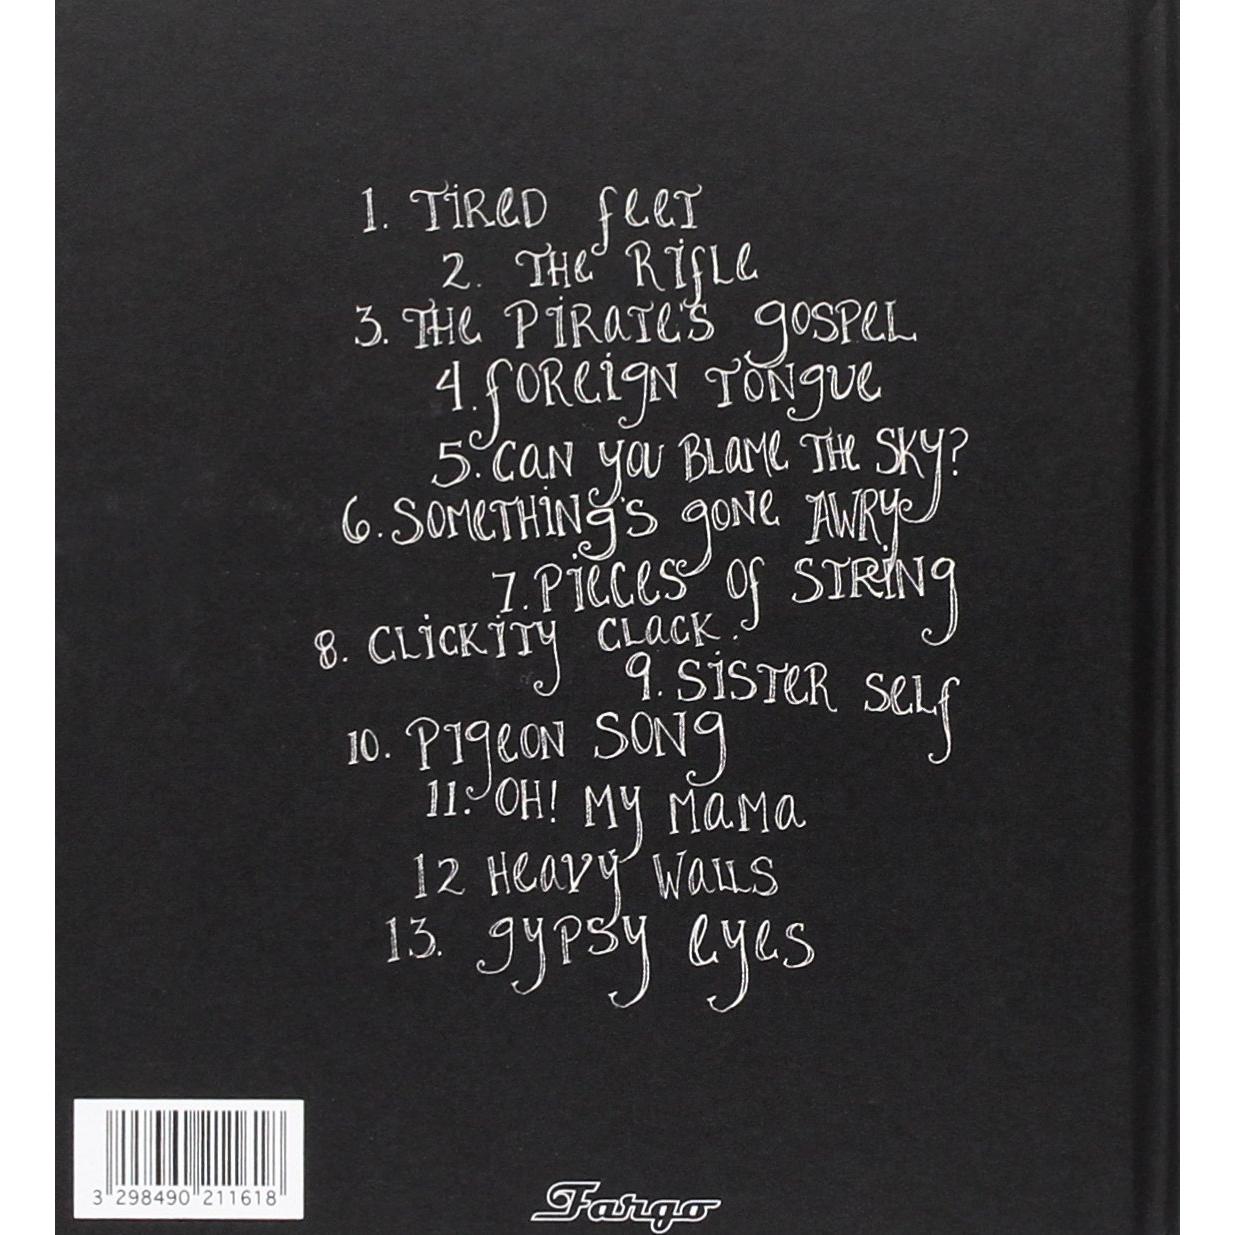 1. Tired Feet
2. The Rifle
3. The Pirate's Gospel
4. Foreign Tongue
5. Can You Blame The Sky?
6. Something's Gone Awry
7. Pieces of String
8. Clickity Clack.
9. Sister Self
10. Pigeon Song
11. Oh! My Mama
12 Heavy Walls
13. Gypsy Eyes
3 298490 211618
Fargo